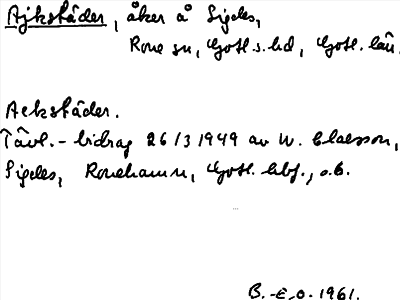 Ajkstäder, åker å Sigdes,
Rone sn, Gotl. s. hd, Gotl. län.
Aekstäder.
Tävl.-bidrag 26/3 1949 av W. Claesson,
Sigdes, Ronehamn, Gotl. 
B.-E. O. 1961.